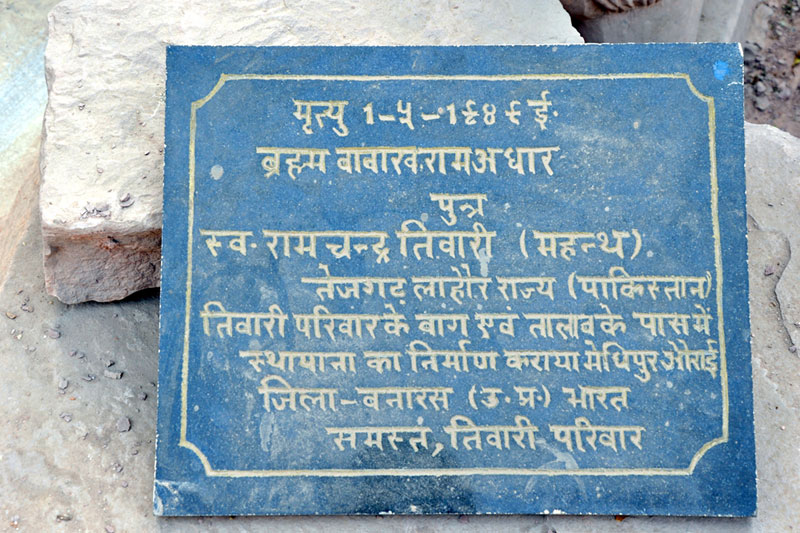 मृत्यु 1-५-1८४६ ई.
ब्रह्म बाबा स्व. राम अधार
पुत्र
स्व. राम चन्द्र तिवारी (महन्थ)
तेजगढ़ लाहौर राज्य (पाकिस्तान)
तिवारी परिवार के बाग एवं तालाब के पास में
स्थापाना का निर्माण कराया मेधिपुर औराई
जिला-बनारस (उ.प्र.) भारत
समस्त, तिवारी परिवार